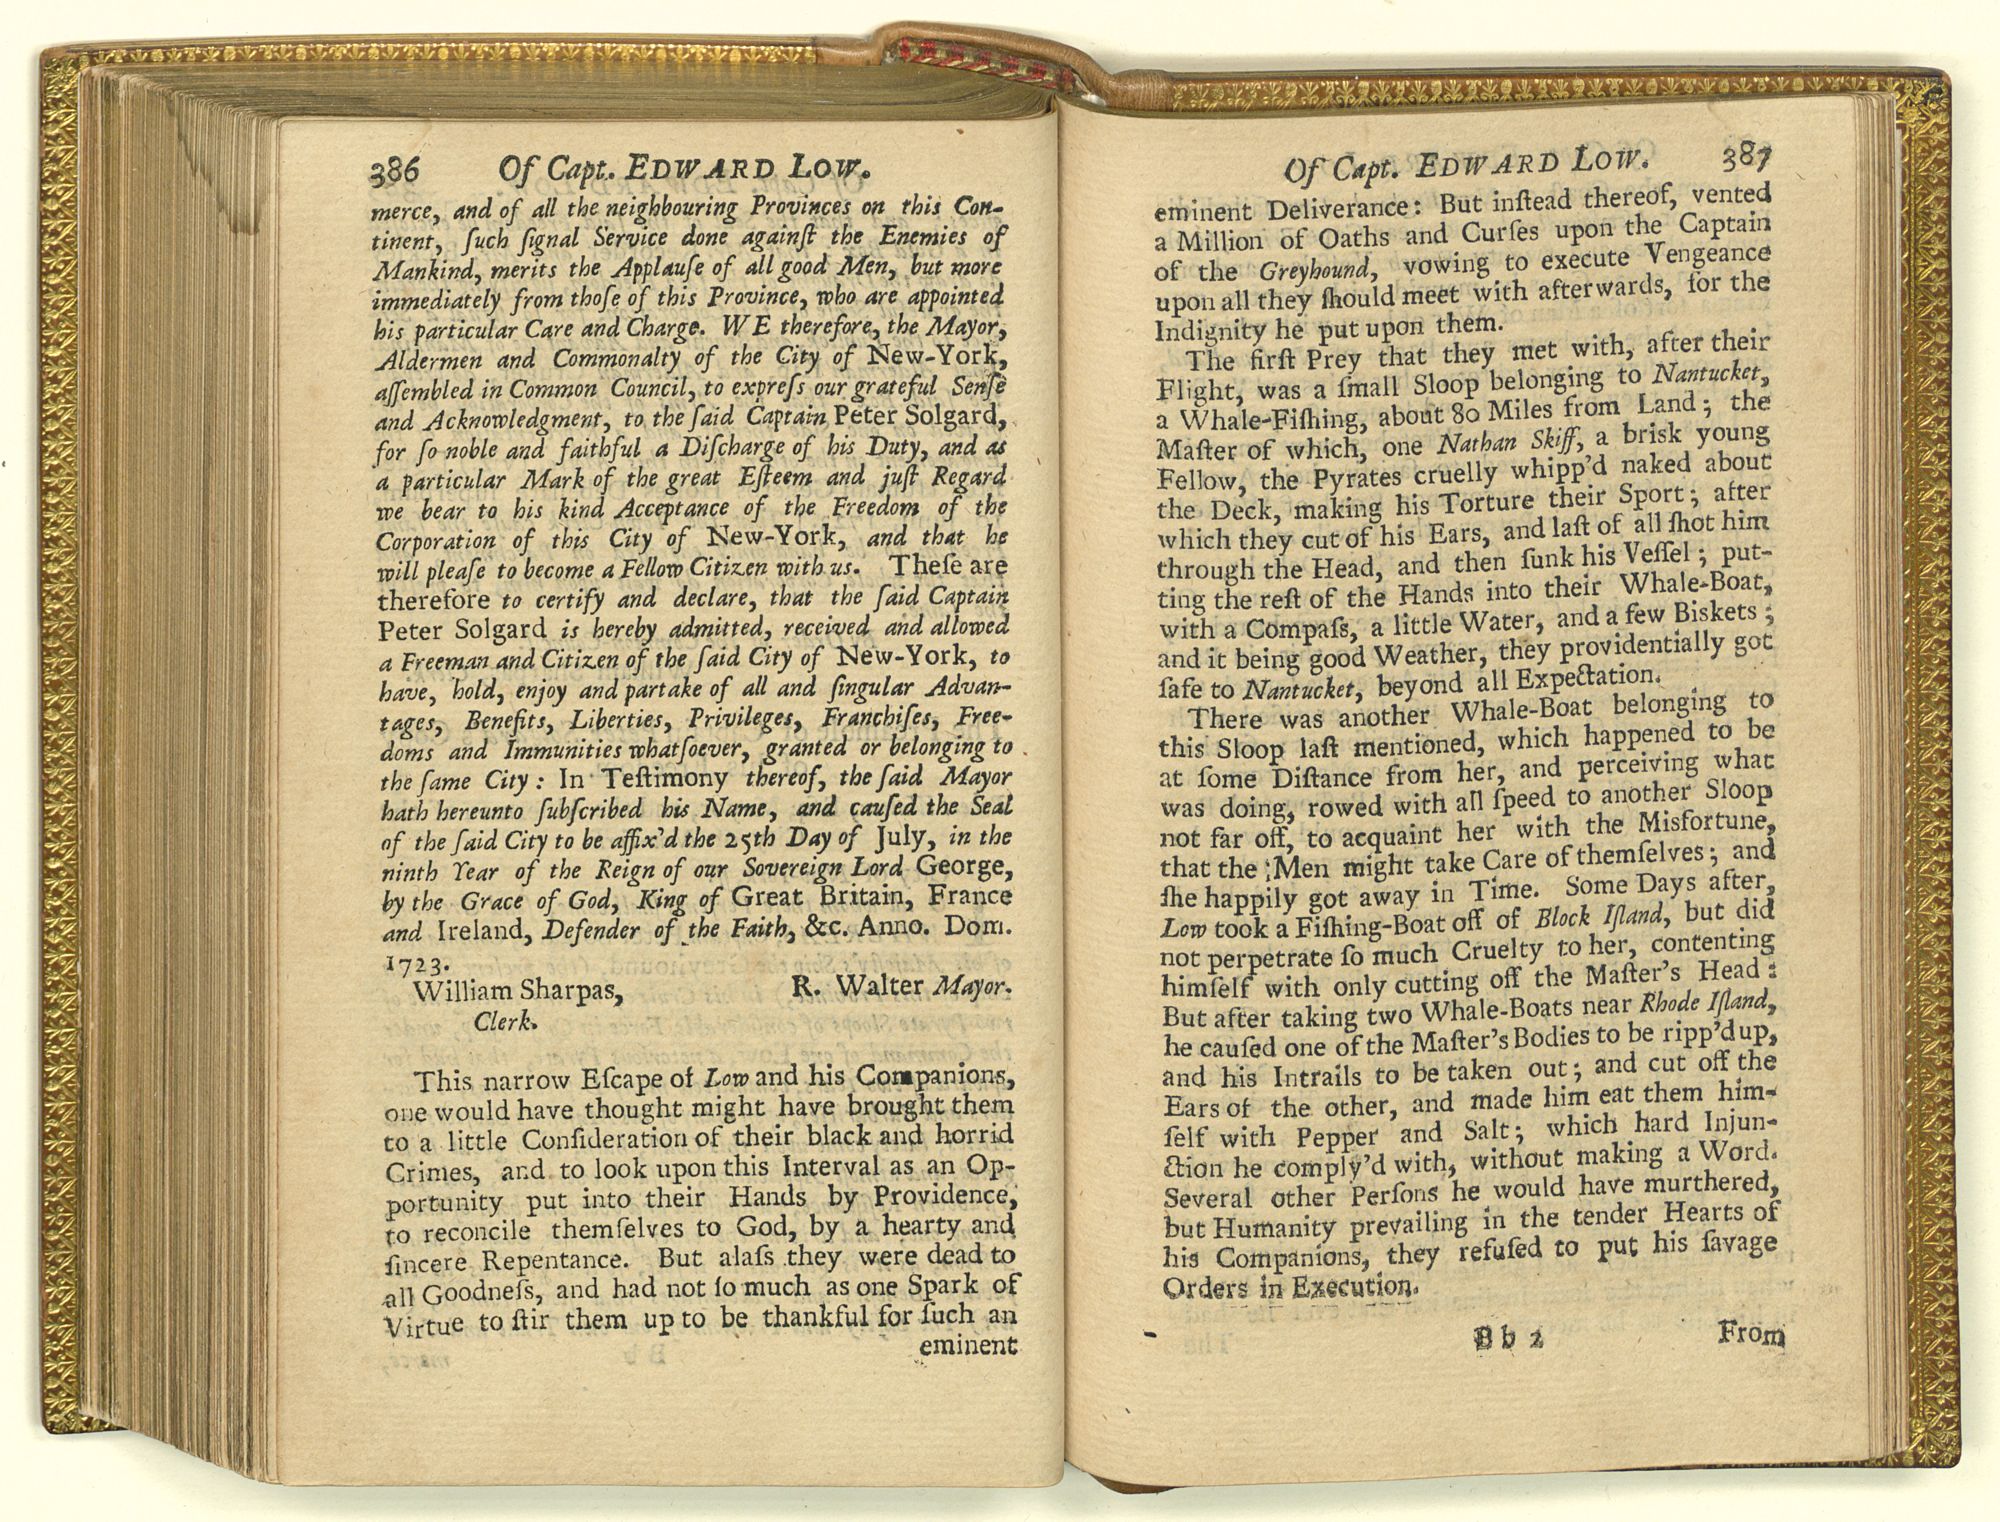 386 Of Capt. EDWARD LOW.
merce, and of all the neighbouring Provinces on this Con-
tinent, ſuch ſignal Service done againſt the Enemies of
Mankind, merits the Applauſe of all good Men, but more
immediately from thoſe of this Province, who are appointed
his particular Care and Charge. WE therefore, the Mayor,
Aldermen and Commonalty of the City of New-York,
aſſembled in Common Council, to expreſs our grateful Senſe
and Acknowledgment, to the ſaid Captain Peter Solgard,
for ſo noble and faithful a Diſcharge of his Duty, and as
a particular Mark of the great Eſteem and juſt Regard
we bear to his kind Acceptance of the Freedom of the
Corporation of this City of New-York, and that he
will pleaſe to become a Fellow Citizen with us. Theſe are
therefore to certify and declare, that the ſaid Captain
Peter Solgard is hereby admitted, received and allowed
a Freeman and Citizen of the ſaid City of New-York, to
have, hold, enjoy and partake of all and ſingular Advan-
tages, Benefits, Liberties, Privileges, Franchiſes, Free-
doms and Immunities whatſoever, granted or belonging to
the ſame City: In Teſtimony thereof, the ſaid Mayor
hath hereunto ſubſcribed his Name, and cauſed the Seal
of the ſaid City to be affix'd the 25th Day of July, in the
ninth Year of the Reign of our Sovereign Lord George,
by the Grace of God, King of Great Britain, France
and Ireland, Defender of the Faith, &c. Anno. Dom.
1723.
William Sharpas, R. Walter Mayor.
Clerk.
This narrow Eſcape of Low and his Companions,
one would have thought might have brought them
to a little Conſideration of their black and horrid
Crimes, and to look upon this Interval as an Op-
portunity put into their Hands by Providence,
to reconcile themſelves to God, by a hearty and
ſincere Repentance. But alaſs they were dead to
all Goodneſs, and had not ſo much as one Spark of
Virtue to ſtir them up to be thankful for ſuch an
eminent
Of Capt. EDWARD LOW. 387
eminent Deliverance: But inſtead thereof, vented
a Million of Oaths and Curſes upon the Captain
of the Greyhound, vowing to execute Vengeance
upon all they ſhould meet with afterwards, for the
Indignity he put upon them.
The firſt Prey that they met with, after their
Flight, was a ſmall Sloop belonging to Nantucket,
a Whale-Fiſhing, about 80 Miles from Land; the
Maſter of which, one Nathan Skiff, a brisk young
Fellow, the Pyrates cruelly whipp'd naked about
the Deck, making his Torture their Sport; after
which they cut of his Ears, and laſt of all ſhot him
through the Head, and then ſunk his Veſſel; put-
ting the reſt of the Hands into their Whale-Boat,
with a Compaſs, a little Water, and a few Biskets;
and it being good Weather, they providentially got
ſafe to Nantucket, beyond all Expectation.
There was another Whale-Boat belonging to
this Sloop laſt mentioned, which happened to be
at ſome Diſtance from her, and perceiving what
was doing, rowed with all ſpeed to another Sloop
not far off, to acquaint her with the Misfortune,
that the Men might take Care of themſelves; and
ſhe happily got away in Time. Some Days after,
Low took a Fiſhing-Boat off of Block Iſland, but did
not perpetrate ſo much Cruelty to her, contenting
himſelf with only cutting off the Maſter's Head:
But after taking two Whale-Boats near Rhode Iſland,
he cauſed one of the Maſter's Bodies to be ripp'd up,
and his Intrails to be taken out; and cut off the
Ears of the other, and made him eat them him-
ſelf with Pepper and Salt; which hard Injun-
ction he comply'd with, without making a Word.
Several other Perſons he would have murthered,
but Humanity prevailing in the tender Hearts of
his Companions, they refuſed to put his ſavage
Orders in Execution.
B b 2 From